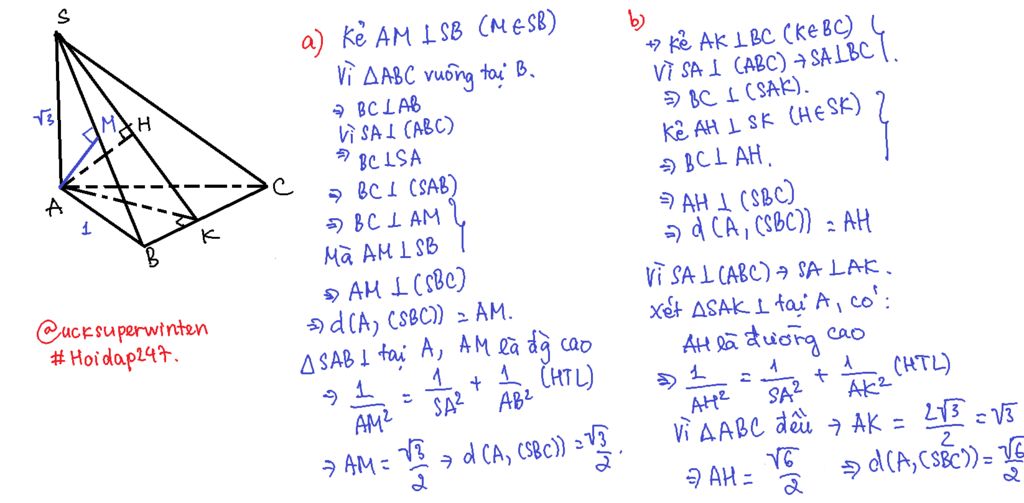 S
√3
M
H
A
C
1
K
B
@ucksuperwinten
#Hoidap247.
a) Kẻ AM ⊥ SB (M∈SB)
Vì △ABC vuông tại B.
⇒ BC⊥AB
Vì SA⊥(ABC)
⇒ BC⊥SA
⇒ BC⊥(SAB)
⇒ BC⊥AM
Mà AM⊥SB
⇒ AM⊥(SBC)
⇒ d(A,(SBC)) = AM.
△SAB⊥ tại A, AM là đg cao
⇒ 1/AM² = 1/SA² + 1/AB² (HTL)
⇒ AM = √3/2 → d(A,(SBC)) = √3/2.
b)
+> Kẻ AK⊥BC (K∈BC)
Vì SA⊥(ABC) → SA⊥BC.
⇒ BC⊥(SAK).
Kẻ AH⊥SK (H∈SK)
⇒ BC⊥AH.
⇒ AH⊥(SBC)
⇒ d(A,(SBC)) = AH
Vì SA⊥(ABC) → SA⊥AK.
Xét △SAK⊥ tại A, có:
AH là đường cao
⇒ 1/AH² = 1/SA² + 1/AK² (HTL)
Vì △ABC đều → AK = 2√3/2 = √3
⇒ AH = √6/2 ⇒ d(A,(SBC)) = √6/2